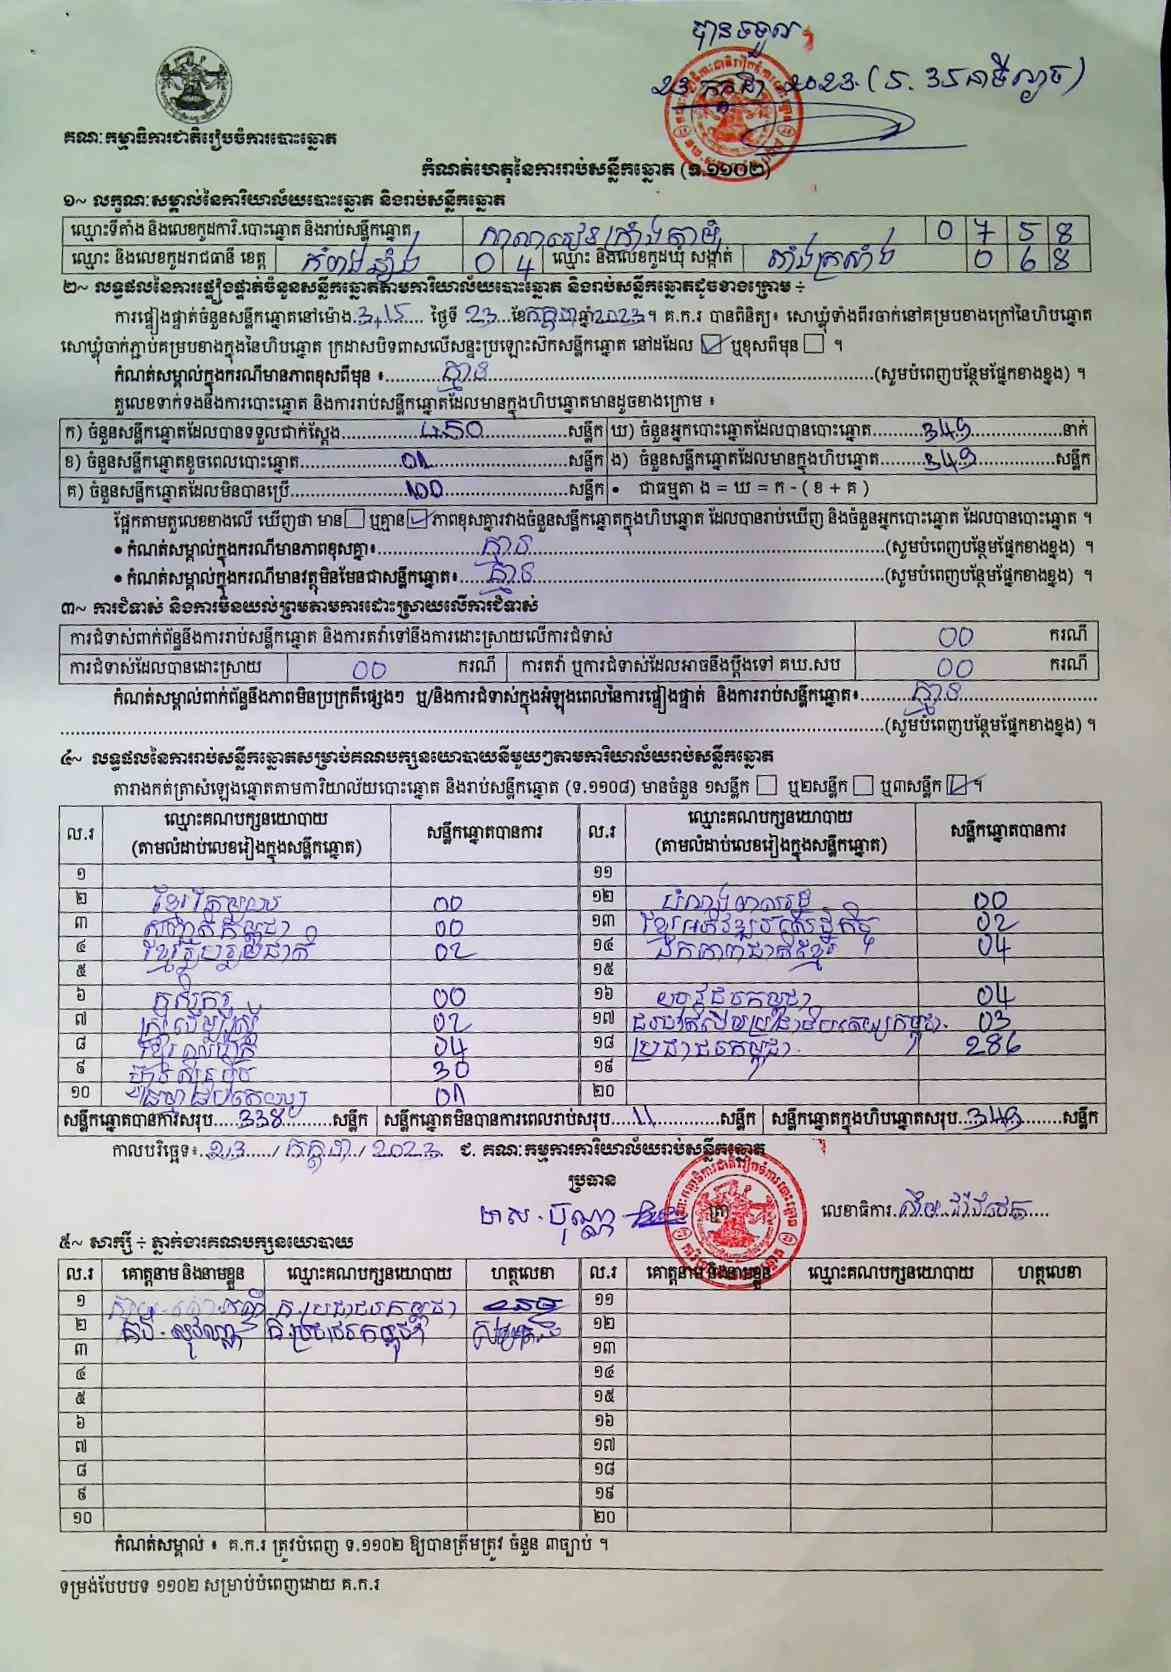 បានទទួល
23 កក្កដា 2023. (5. 35 នាទីល្ងាច)
គណៈកម្មាធិការជាតិរៀបចំការបោះឆ្នោត
កំណត់ហេតុនៃការរាប់សន្លឹកឆ្នោត (ទ.១១០២)
១~ លក្ខណៈសម្គាល់នៃការិយាល័យបោះឆ្នោត និងរាប់សន្លឹកឆ្នោត
ឈ្មោះទីតាំង និងលេខកូដការិ.បោះឆ្នោត និងរាប់សន្លឹកឆ្នោត 0 7 5 8
ឈ្មោះ និងលេខកូដរាជធានី ខេត្ត កំពង់ឆ្នាំង 0 4 ឈ្មោះ និងលេខកូដឃុំ សង្កាត់ តាំងក្រសាំង 0 6 8
២~ លទ្ធផលនៃការផ្ទៀងផ្ទាត់ចំនួនសន្លឹកឆ្នោតតាមការិយាល័យបោះឆ្នោត និងរាប់សន្លឹកឆ្នោតដូចខាងក្រោម ÷
ការផ្ទៀងផ្ទាត់ចំនួនសន្លឹកឆ្នោតនៅម៉ោង 3,15 ថ្ងៃទី 23 ខែ កក្កដា ឆ្នាំ 2023 ។ គ.ក.រ បានពិនិត្យ៖ សោឃ្លុំទាំងពីរចាក់នៅគម្របខាងក្រៅនៃហិបឆ្នោត
សោឃ្លុំចាក់ភ្ជាប់គម្របខាងក្នុងនៃហិបឆ្នោត ក្រដាសបិទពាសលើសន្ទះប្រឡោះស៊កសន្លឹកឆ្នោត នៅដដែល ☑ ឬខុសពីមុន ☐ ។
កំណត់សម្គាល់ក្នុងករណីមានភាពខុសពីមុន ៖ គ្មាន (សូមបំពេញបន្ថែមផ្នែកខាងខ្នង) ។
តួលេខទាក់ទងនឹងការបោះឆ្នោត និងការរាប់សន្លឹកឆ្នោតដែលមានក្នុងហិបឆ្នោតមានដូចខាងក្រោម ៖
ក) ចំនួនសន្លឹកឆ្នោតដែលបានទទួលជាក់ស្តែង 450 សន្លឹក ឃ) ចំនួនអ្នកបោះឆ្នោតដែលបានបោះឆ្នោត 349 នាក់
ខ) ចំនួនសន្លឹកឆ្នោតខូចពេលបោះឆ្នោត 01 សន្លឹក ង) ចំនួនសន្លឹកឆ្នោតដែលមានក្នុងហិបឆ្នោត 349 សន្លឹក
គ) ចំនួនសន្លឹកឆ្នោតដែលមិនបានប្រើ 100 សន្លឹក • ជាធម្មតា ង = ឃ = ក - ( ខ + គ )
ផ្អែកតាមតួលេខខាងលើ ឃើញថា មាន ☐ ឬគ្មាន ☑ ភាពខុសគ្នារវាងចំនួនសន្លឹកឆ្នោតក្នុងហិបឆ្នោត ដែលបានរាប់ឃើញ និងចំនួនអ្នកបោះឆ្នោត ដែលបានបោះឆ្នោត ។
• កំណត់សម្គាល់ក្នុងករណីមានភាពខុសគ្នា៖ គ្មាន (សូមបំពេញបន្ថែមផ្នែកខាងខ្នង) ។
• កំណត់សម្គាល់ក្នុងករណីមានវត្ថុមិនមែនជាសន្លឹកឆ្នោត៖ គ្មាន (សូមបំពេញបន្ថែមផ្នែកខាងខ្នង) ។
៣~ ការជំទាស់ និងការមិនយល់ព្រមតាមការដោះស្រាយលើការជំទាស់
ការជំទាស់ពាក់ព័ន្ធនឹងការរាប់សន្លឹកឆ្នោត និងការតវ៉ាទៅនឹងការដោះស្រាយលើការជំទាស់ 00 ករណី
ការជំទាស់ដែលបានដោះស្រាយ 00 ករណី ការតវ៉ា ឬការជំទាស់ដែលអាចនឹងប្តឹងទៅ គឃ.សប 00 ករណី
កំណត់សម្គាល់ពាក់ព័ន្ធនឹងភាពមិនប្រក្រតីផ្សេងៗ ឬ/និងការជំទាស់ក្នុងអំឡុងពេលនៃការផ្ទៀងផ្ទាត់ និងការរាប់សន្លឹកឆ្នោត៖ គ្មាន
(សូមបំពេញបន្ថែមផ្នែកខាងខ្នង) ។
៤~ លទ្ធផលនៃការរាប់សន្លឹកឆ្នោតសម្រាប់គណបក្សនយោបាយនីមួយៗតាមការិយាល័យរាប់សន្លឹកឆ្នោត
តារាងកត់ត្រាសំឡេងឆ្នោតតាមការិយាល័យបោះឆ្នោត និងរាប់សន្លឹកឆ្នោត (ទ.១១០៨) មានចំនួន ១សន្លឹក ☐ ឬ២សន្លឹក ☐ ឬ៣សន្លឹក ☑ ។
ល.រ ឈ្មោះគណបក្សនយោបាយ (តាមលំដាប់លេខរៀងក្នុងសន្លឹកឆ្នោត) សន្លឹកឆ្នោតបានការ ល.រ ឈ្មោះគណបក្សនយោបាយ (តាមលំដាប់លេខរៀងក្នុងសន្លឹកឆ្នោត) សន្លឹកឆ្នោតបានការ
១ ១១
២ ខ្មែរតែមួយ 00 ១២ 00
៣ សញ្ជាតិកម្ពុជា 00 ១៣ ខ្មែរអភិវឌ្ឍន៍សេដ្ឋកិច្ច 02
៤ ខ្មែររួបរួមជាតិ 02 ១៤ ឯកភាពជាតិខ្មែរ 04
៥ ១៥
៦ កសិករ 00 ១៦ យុវជនកម្ពុជា 04
៧ ស្ត្រីដើម្បីស្ត្រី 02 ១៧ 03
៨ 04 ១៨ ប្រជាជនកម្ពុជា 286
៩ ហ៊្វុនស៊ិនប៉ិច 30 ១៩
១០ 01 ២០
សន្លឹកឆ្នោតបានការសរុប 338 សន្លឹក សន្លឹកឆ្នោតមិនបានការពេលរាប់សរុប 11 សន្លឹក សន្លឹកឆ្នោតក្នុងហិបឆ្នោតសរុប 349 សន្លឹក
កាលបរិច្ឆេទ៖ 23 / កក្កដា / 2023 ជ. គណៈកម្មការការិយាល័យរាប់សន្លឹកឆ្នោត
ប្រធាន
លេខាធិការ
៥~ សាក្សី ÷ ភ្នាក់ងារគណបក្សនយោបាយ
ល.រ គោត្តនាម និងនាមខ្លួន ឈ្មោះគណបក្សនយោបាយ ហត្ថលេខា ល.រ គោត្តនាម និងនាមខ្លួន ឈ្មោះគណបក្សនយោបាយ ហត្ថលេខា
១ គ.ប្រជាជនកម្ពុជា ១១
២ គ.ប្រជាជនកម្ពុជា ១២
៣ ១៣
៤ ១៤
៥ ១៥
៦ ១៦
៧ ១៧
៨ ១៨
៩ ១៩
១០ ២០
កំណត់សម្គាល់ ៖ គ.ក.រ ត្រូវបំពេញ ទ.១១០២ ឱ្យបានត្រឹមត្រូវ ចំនួន ៣ច្បាប់ ។
ទម្រង់បែបបទ ១១០២ សម្រាប់បំពេញដោយ គ.ក.រ